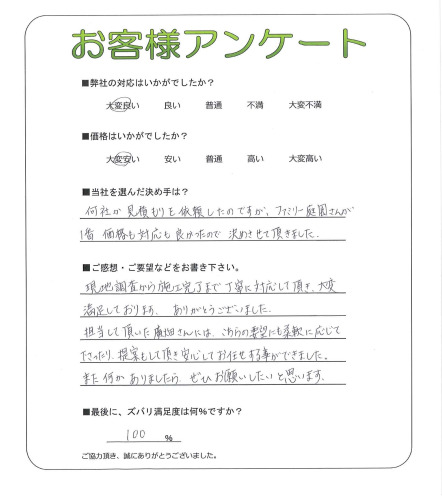 お客様アンケート
■弊社の対応はいかがでしたか？
大変良い 良い 普通 不満 大変不満
■価格はいかがでしたか？
大変安い 安い 普通 高い 大変高い
■当社を選んだ決め手は？
何社か見積もりを依頼したのですが、ファミリー庭園さんが
1番 価格も対応も良かったので 決めさせて頂きました.
■ご感想・ご要望などをお書き下さい。
現地調査から施工完了まで丁寧に対応して頂き、大変
満足しております. ありがとうございました.
担当して頂いた廣畑さんには、こちらの要望にも柔軟に応じて
くださったり、提案もして頂き安心してお任せする事ができました。
また何かありましたら ぜひお願いしたいと思います.
■最後に、ズバリ満足度は何%ですか？
100 %
ご協力頂き、誠にありがとうございました。